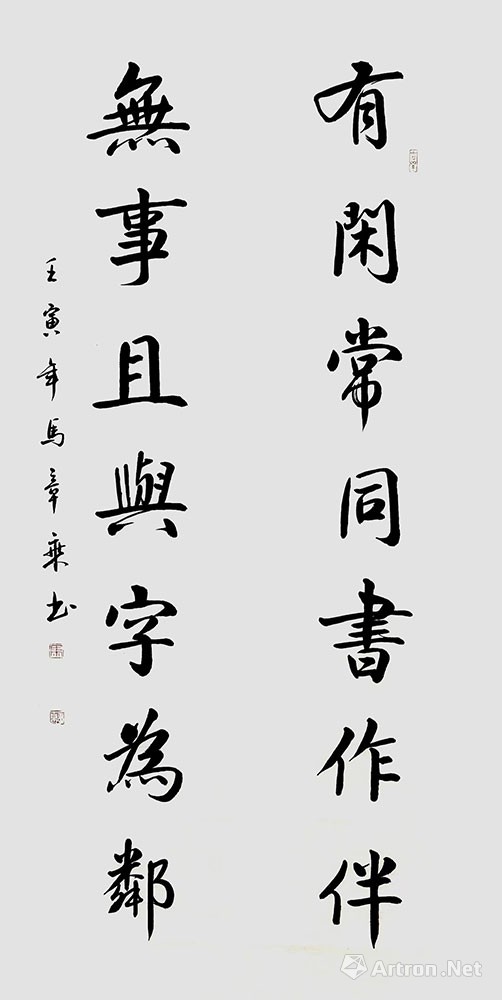 有閑常同書作伴
無事且與字為鄰
壬寅年馬章乘书
Artron.Net